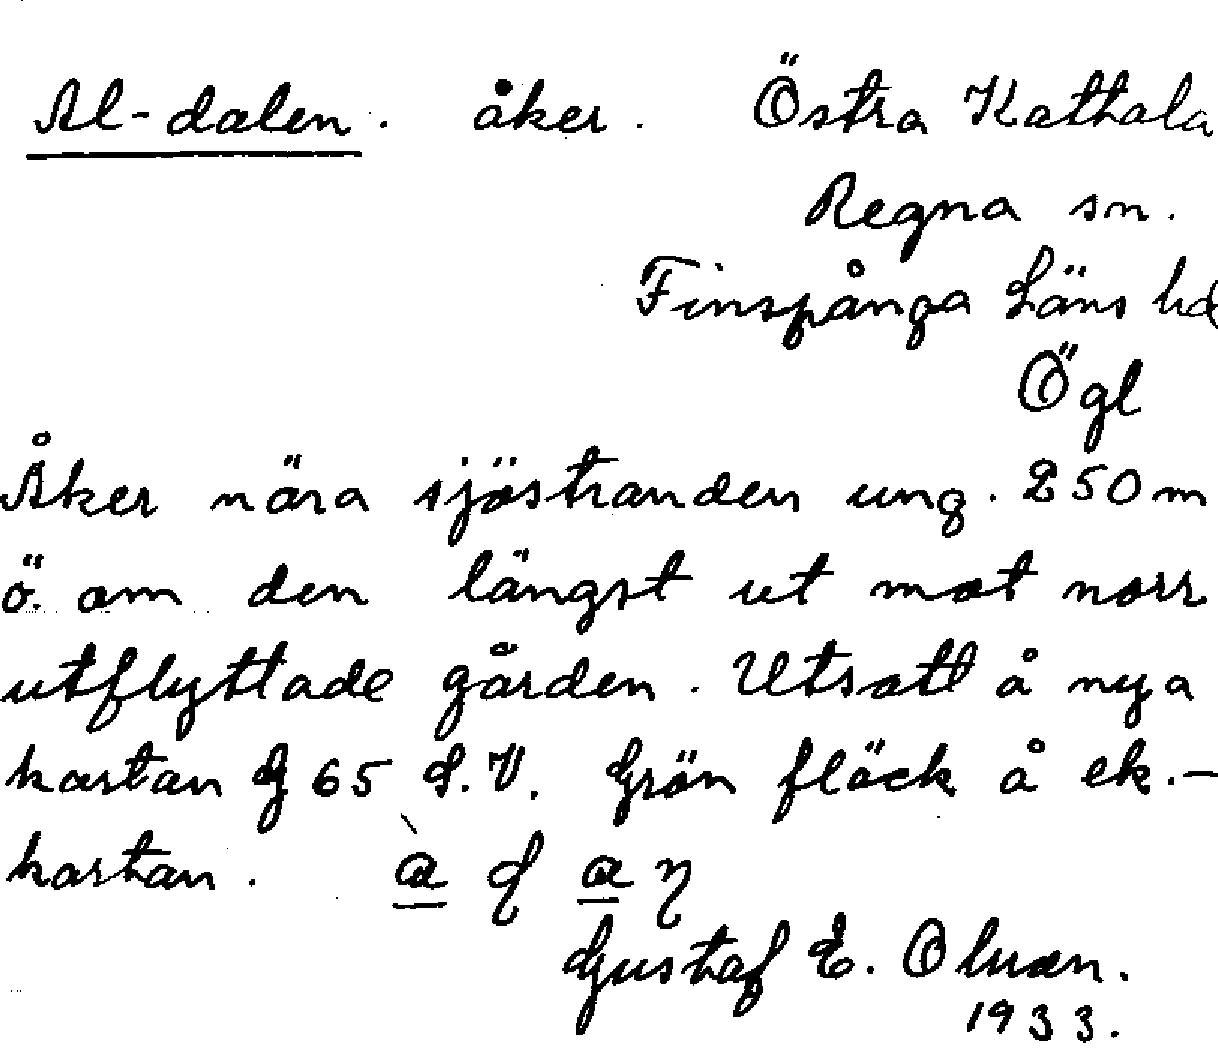 Al-dalen. åker. Östra Kathala
Regna sn.
Finspånga Läns hd
Ögl
Åker nära sjöstranden ung. 250 m
ö. om den längst ut mot norr
utflyttade gården. Utsatt å nya
kartan G 65 S.V. Grön fläck å ek.-
kartan.
Gustaf E. Olsson.
1933.